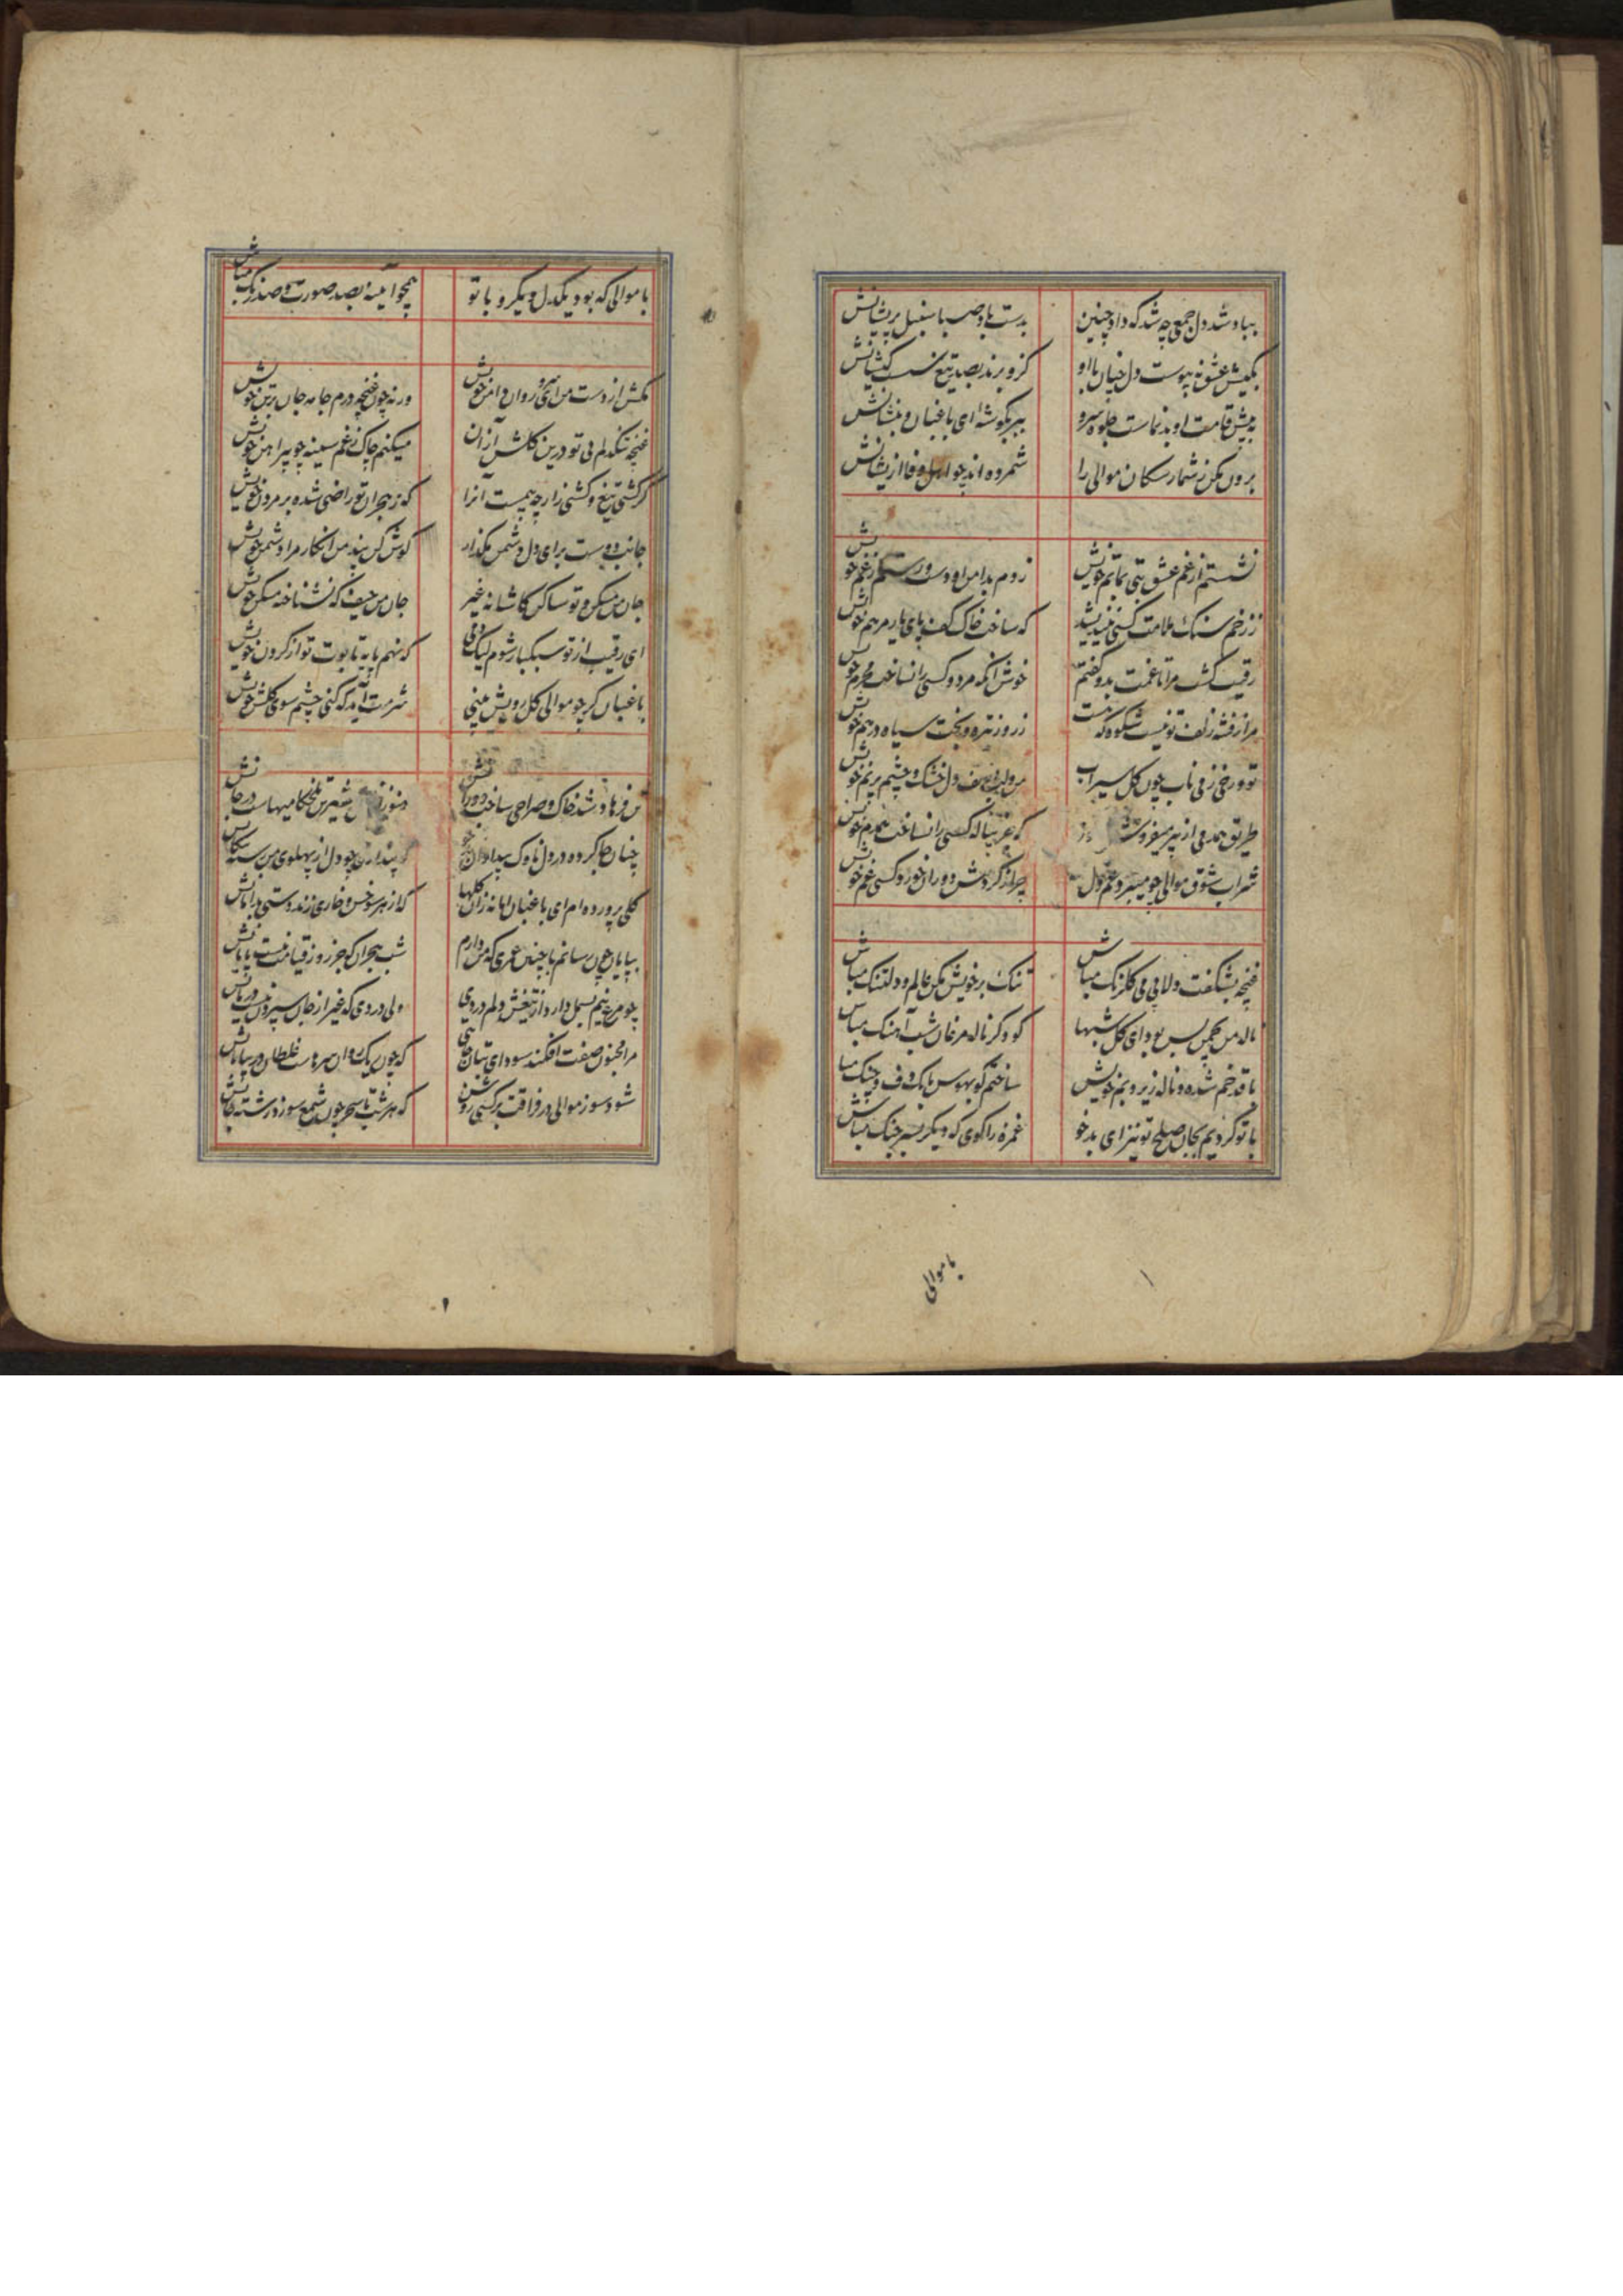 بباد شد دل جمعی چه شد که داد چنین بدست باد صبا سنبل پریشانش
بکیش عشق نه پیوست دل چنان با او کزو برند بصد تیغ
به پیش قامت او بدنماست جلوه سرو ببر بگوشه ای باغبان و بنشانش
برون مکن ز شمار سکان موالی را شمرده اند چو اهل وفا از یشانش
نشستم از غم عشق بتی بماتم خویش زدم بدامن او دست رستم زغم خویش
ز زخم سنک ملامت کسی که ساخت خاک کف پای یار مرهم خویش
رقیب کشت مرا تا غمت بدو کفتم خوش آنکه مرد و کسی را نساخت محرم خویش
مرا ز فتنه زلف تو نیست شکوه که هست ز روز تیره و بخت سیاه درهم خویش
تو و رخی ز می ناب چون کل سیراب من و لب دل خشک و چشم پرنم خویش
طریق همدمی از نی که غیر ناله کسی را نساخت همدم خویش
شراب شوق موالی چو میبرد غم دل چرا ز کردش دوران خورد کسی غم خویش
غنچه بشکفت دلا بی می کلرنک مباش تنک بر خویش مکن عالم و دلتنک مباش
ناله من بچمن بس بود ای کل شبها کو دکر ناله مرغان شب آهنک مباش
با قد خم شده و ناله زیر و بم خویش ساختم کو بهوس بانک دف و چنک مباش
با تو کردیم بجان صلح تو نیز ای بدخو غمزه را کوی که دیکر بسر جنک مباش
با موالی
با موالی که بود یکدل و یکرو با تو همچو آیینه بصد صورت و صد رنک مباش
مکش از دست من ای سرو روان دامن خویش ورنه چون غنچه درم جامه جان بر تن خویش
غنچه تنکدلم بی تو درین کلشن از آن میکنم چاک ز غم سینه چو پیراهن خویش
کر کشی تیغ و کشی زار چه بیمست آنرا که ز هجران تو راضی شده بر مردن خویش
جانب دوست برای دل دشمن مکذار کوش کن پند من انکار مرا دشمن خویش
جان من مسکن و تو ساکن کاشانه غیر جان من حیف که نشناخته مسکن خویش
ای رقیب از تو سبکبار شوم لیک دمی که نهم پایه تابوت تو از کردن خویش
باغبان کر چو موالی کل رویش بینی شرمت آید که کنی چشم سوی کلشن خویش
فرهاد شد خاک و صراحی ساخت دورانش هنوز شیرین تلخکامیهاست در جانش
چنان جا کرده در دل ناوک بیداد آن چو دل از پهلوی من
کلی پرورده ام ای باغبان اما نه زان کلها که از هر سو خس و خاری زند دستی بدامانش
بپایان چون رسانم با چنین عمری که من دارم شب هجران که جز روز قیامت نیست پایانش
چو مرغ نیم بسمل دارد از تیغش دلم دردی ولی دردی که غیر از جان سپردن نیست درمانش
مرا مجنون صفت افکند سودای بتان که چون ریک روان سرهاست غلطان در بیابانش
شود سوز موالی در فراقت بر کسی روشن که هر شب تا سحر چون شمع سوزد رشته جانش